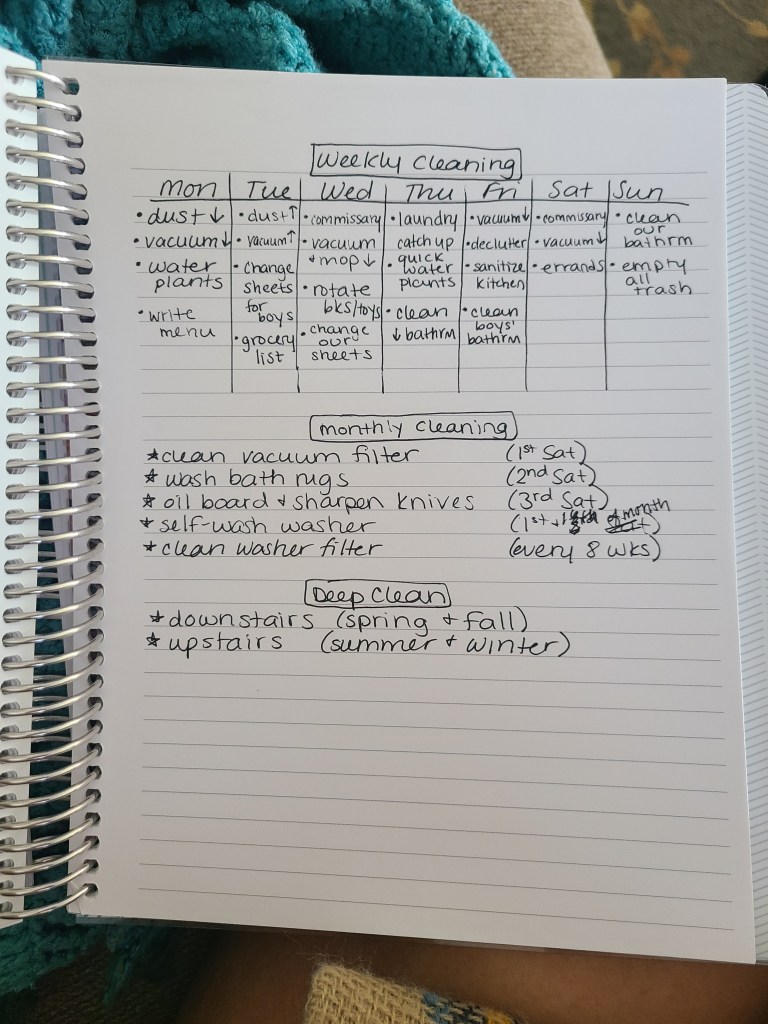 Weekly Cleaning
Mon Tue Wed Thu Fri Sat Sun
• dust ↓
• vacuum ↓
• water
plants
• write
menu
• dust ↑
• vacuum ↑
• change
sheets
for
boys
• grocery
list
• commissary
• vacuum
+ mop ↓
• rotate
bks/toys
• change
our
sheets
• laundry
catch up
• quick
water
plants
• clean
↓ bathrm
• vacuum ↓
• declutter
• sanitize
kitchen
• clean
boys'
bathrm
• commissary
• vacuum ↓
• errands
• clean
our
bathrm
• empty
all
trash
monthly cleaning
★ clean vacuum filter (1st Sat)
★ wash bath rugs (2nd Sat)
★ oil board + sharpen knives (3rd Sat)
★ self-wash washer (1st + of month)
★ clean washer filter (every 8 wks)
Deep Clean
★ downstairs (spring + fall)
★ upstairs (summer + winter)